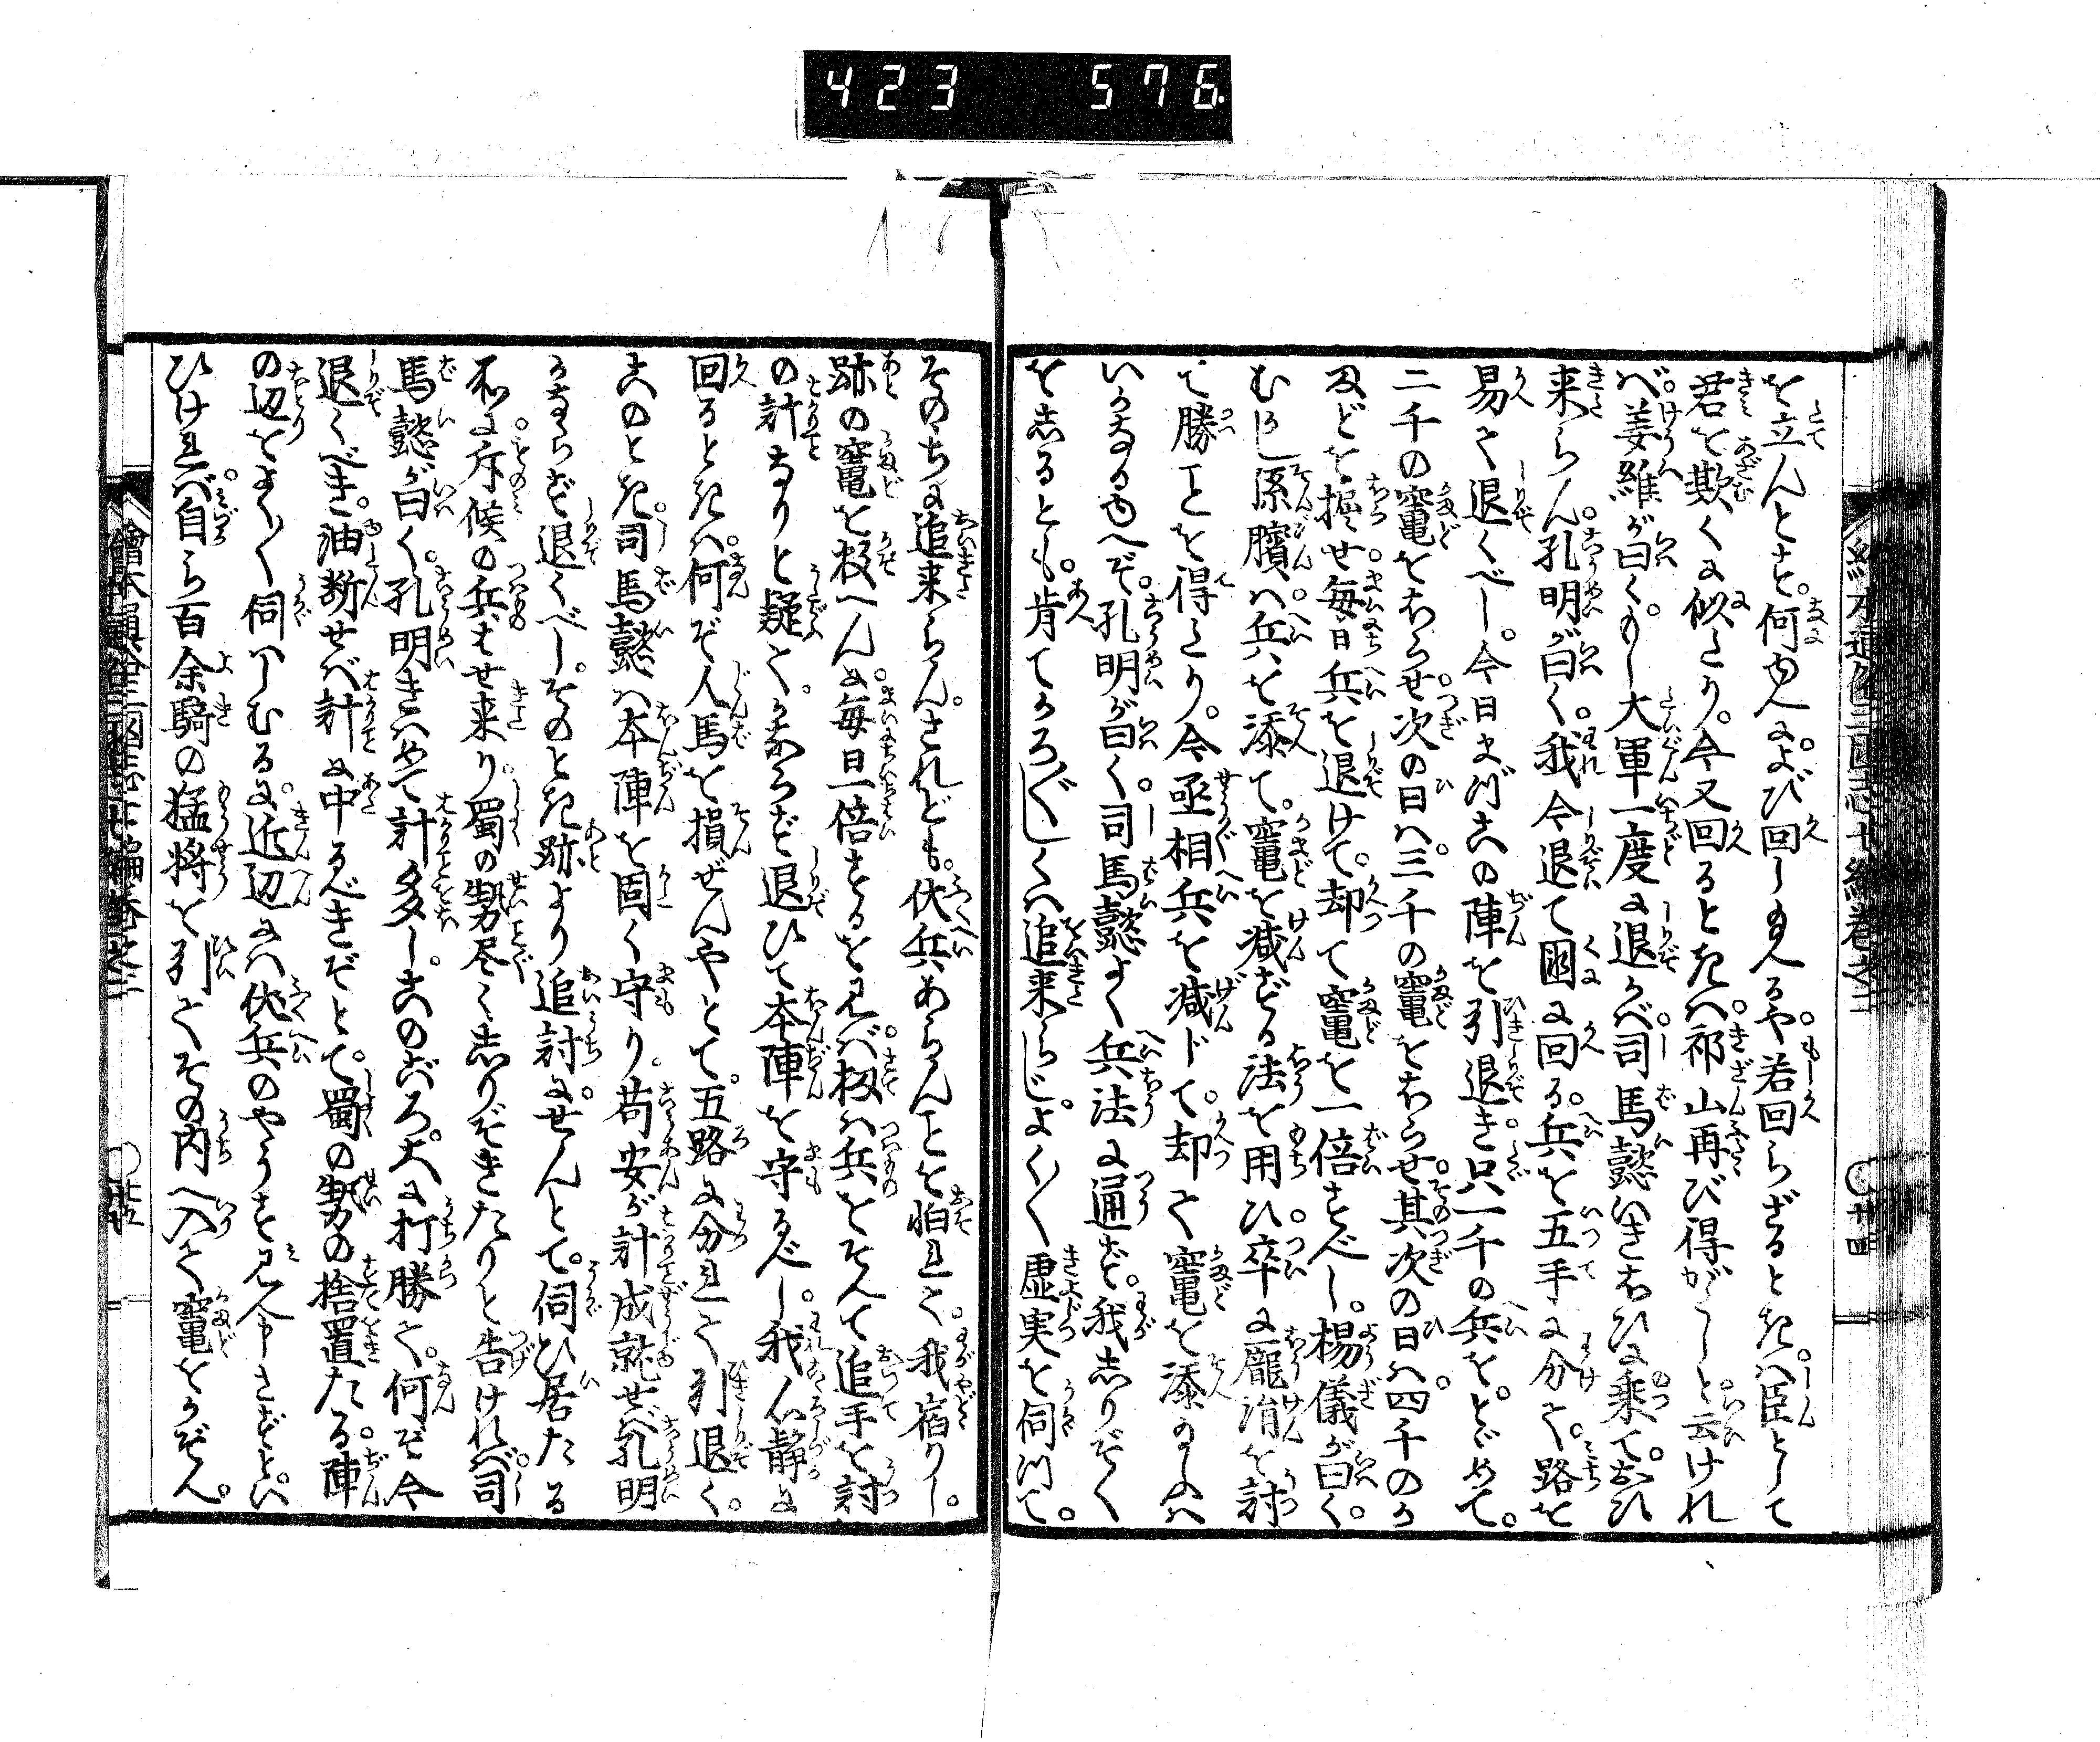 423 576.
を立んとす。何ゆへによび回し玉るや。若回らざるときは。臣として
君を欺くに似たり。今又回るときは。祁山再び得がたしと云けれ
ば。姜維が曰く。もし大軍一度に退かば。司馬懿いきおひに乗て。おひ
来らん。孔明が曰く。我今退て国に回る。兵を五手に分て。路を
易て退くべし。今日まづ此の陣を引退き。只一千の兵を。とゞめて。
二千の竃をおらせ。次の日は。三千の竃をおらせ。其次の日は。四千のか
まどを掘せ。毎日兵を退けて。却て竃を一倍すべし。楊儀が曰く。
むかし孫臏は。兵を添て。竃を減ずる法を用ひ。卒に龐涓を討
て勝ことを得たり。今丞相兵を減じて。却て竃を添のふは
いかなるゆへぞ。孔明が曰く。司馬懿よく兵法に通ず。我しりぞく
をしるとも。肯てかろ〴〵しくは追来らじ。よく〳〵虚実を伺て。
そのちに追来らん。されども。伏兵あらんことを怕れて。我宿りし。
跡の竃を数へんに。毎日一倍するを見ば。扨は兵をそへて追手を討
の計なりと疑て。かならず退ひて本陣を守るべし。我心静に
回るときは。何ぞ人馬を損ぜんやとて。五路に分れて引退く。
此のとき。司馬懿は本陣を固く守り。苟安が計成就せば。孔明
かならず退くべし。そのとき跡より追討にせんとて。伺ひ居たる
所に。斥候の兵はせ来り。蜀の勢尽くしりぞきたりと告ければ。司
馬懿が曰く。孔明きはめて計多し。此のごろ。大に打勝て。何ぞ今
退くべき。油断せば計に中るべきぞとて。蜀の勢の捨置たる。陣
の辺をよく〳〵伺はしむるに。近辺には伏兵のやうす見へ申さずとい
ひければ。自ら百余騎の猛将を引て。その内へ入て竃をかぞへ。
繪本通俗三国志七編巻之二